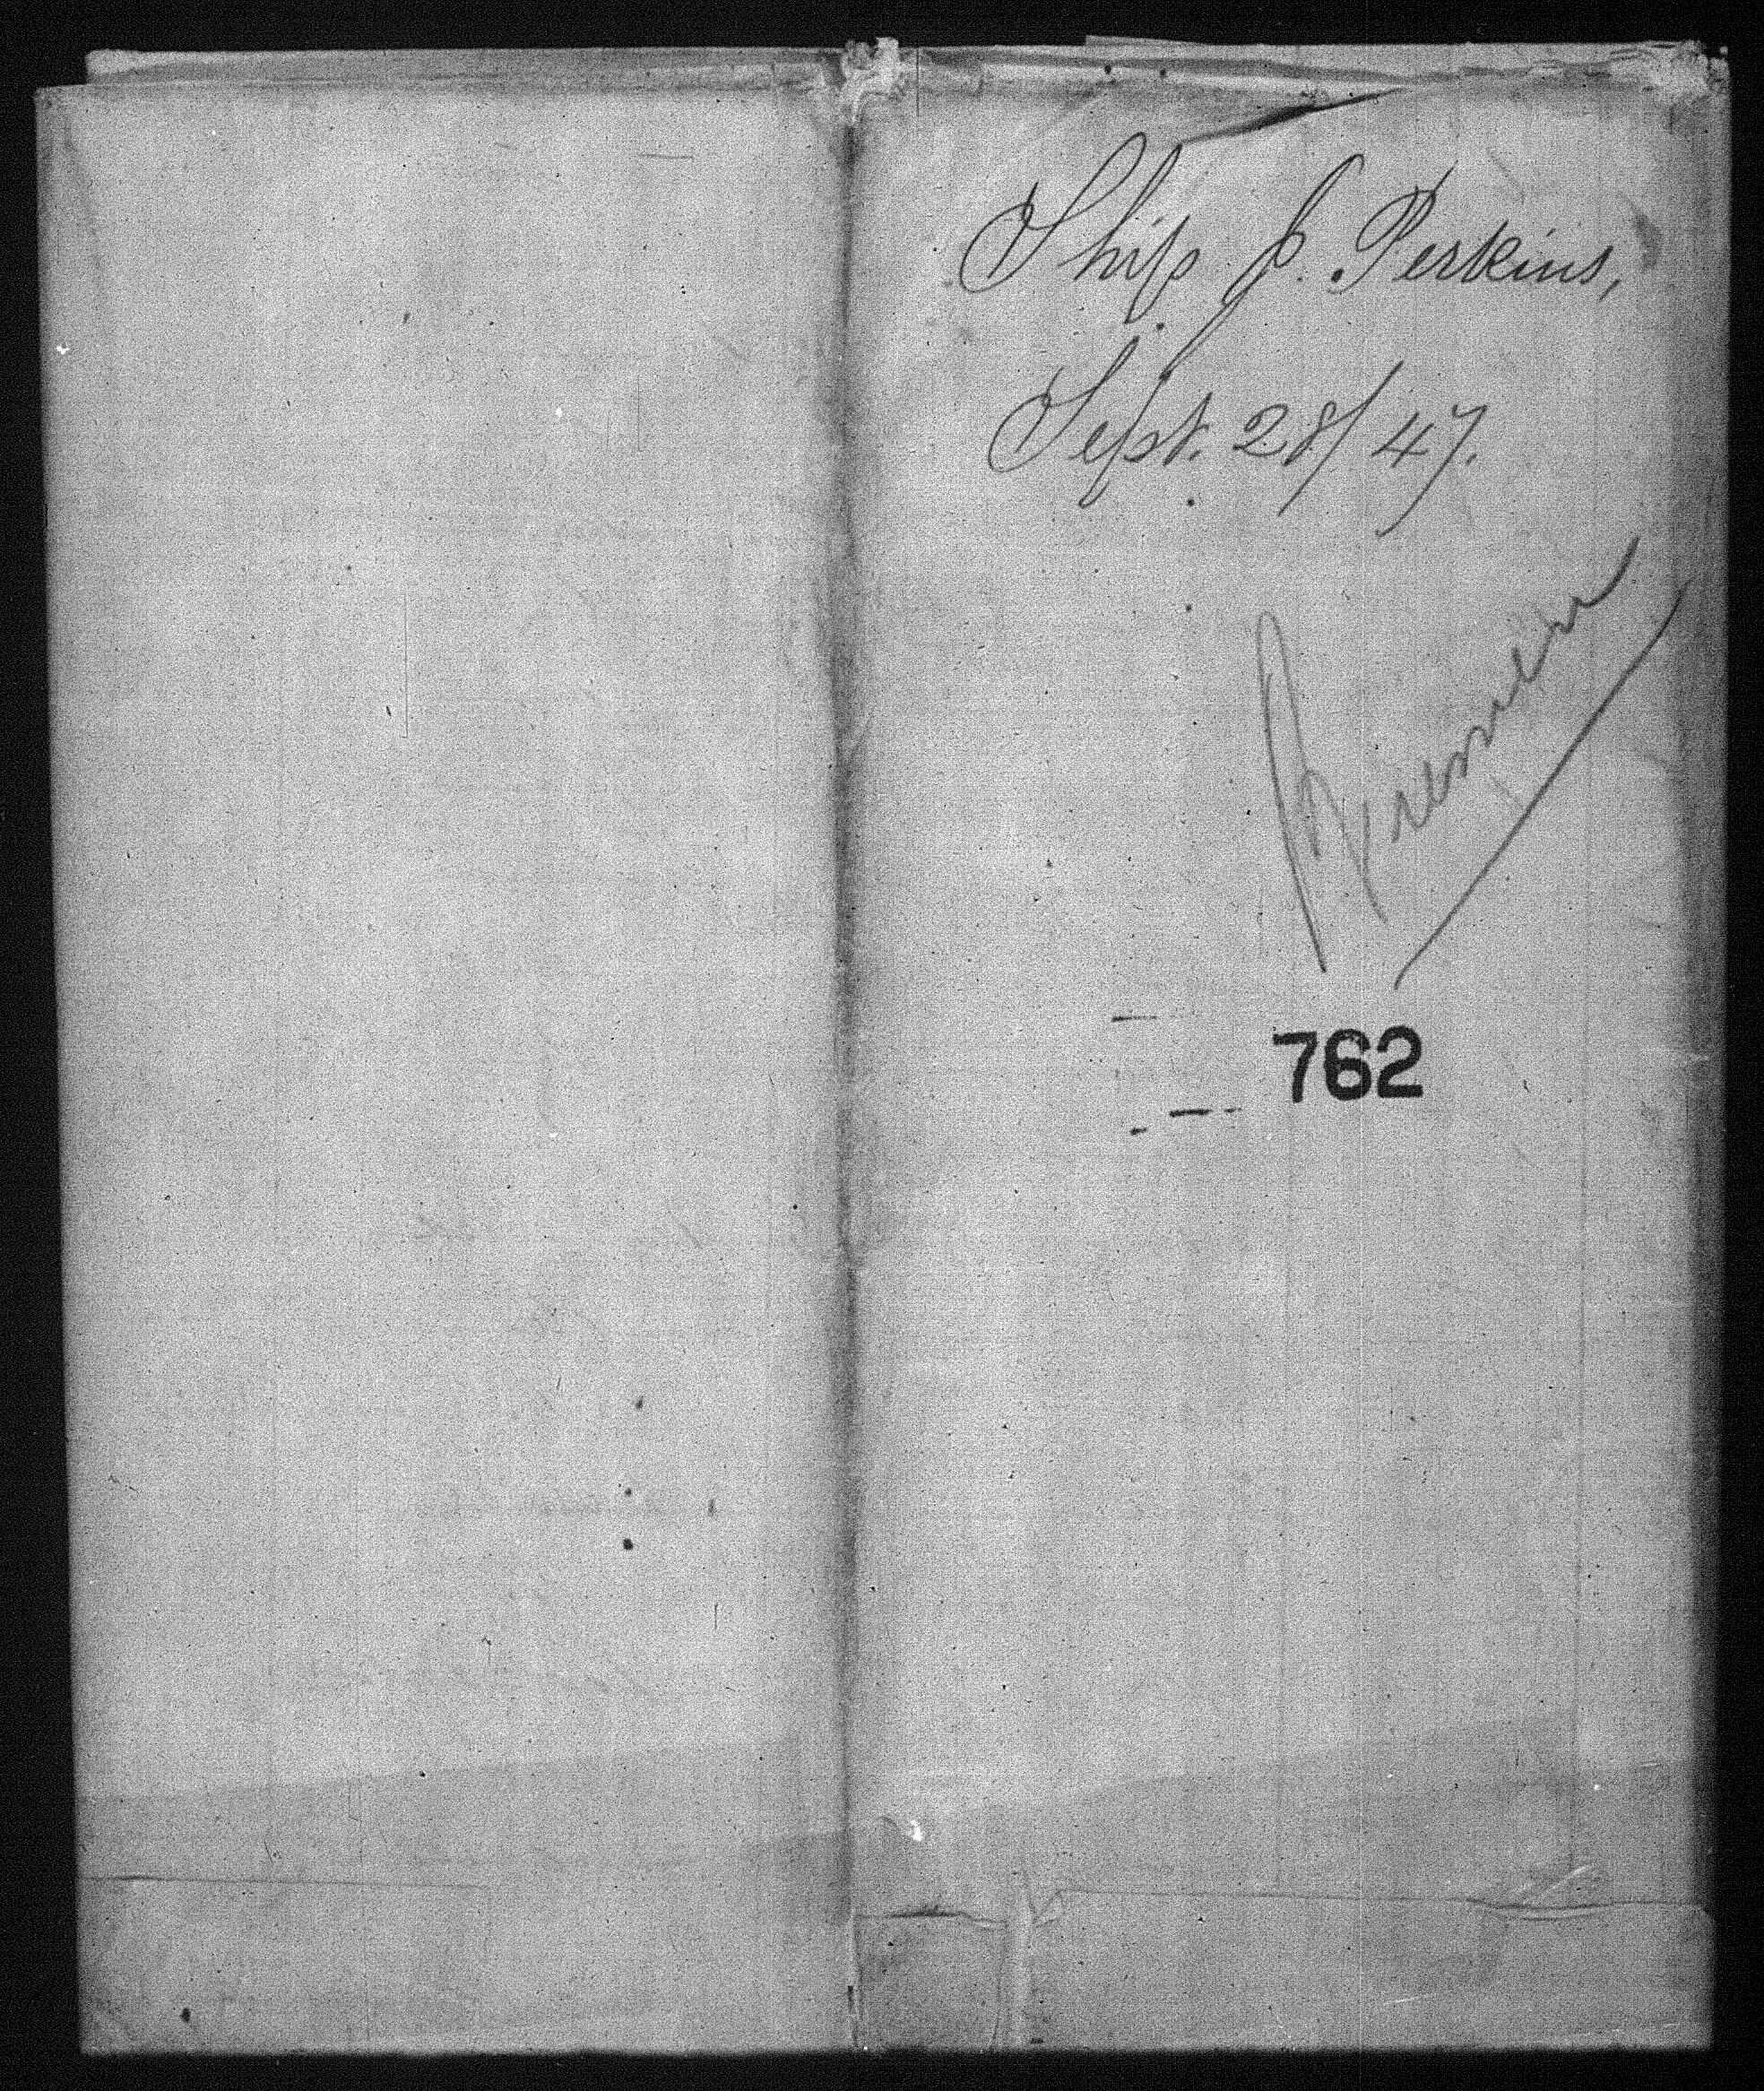 Ship J. Perkins,
Sept. 28/47.
762